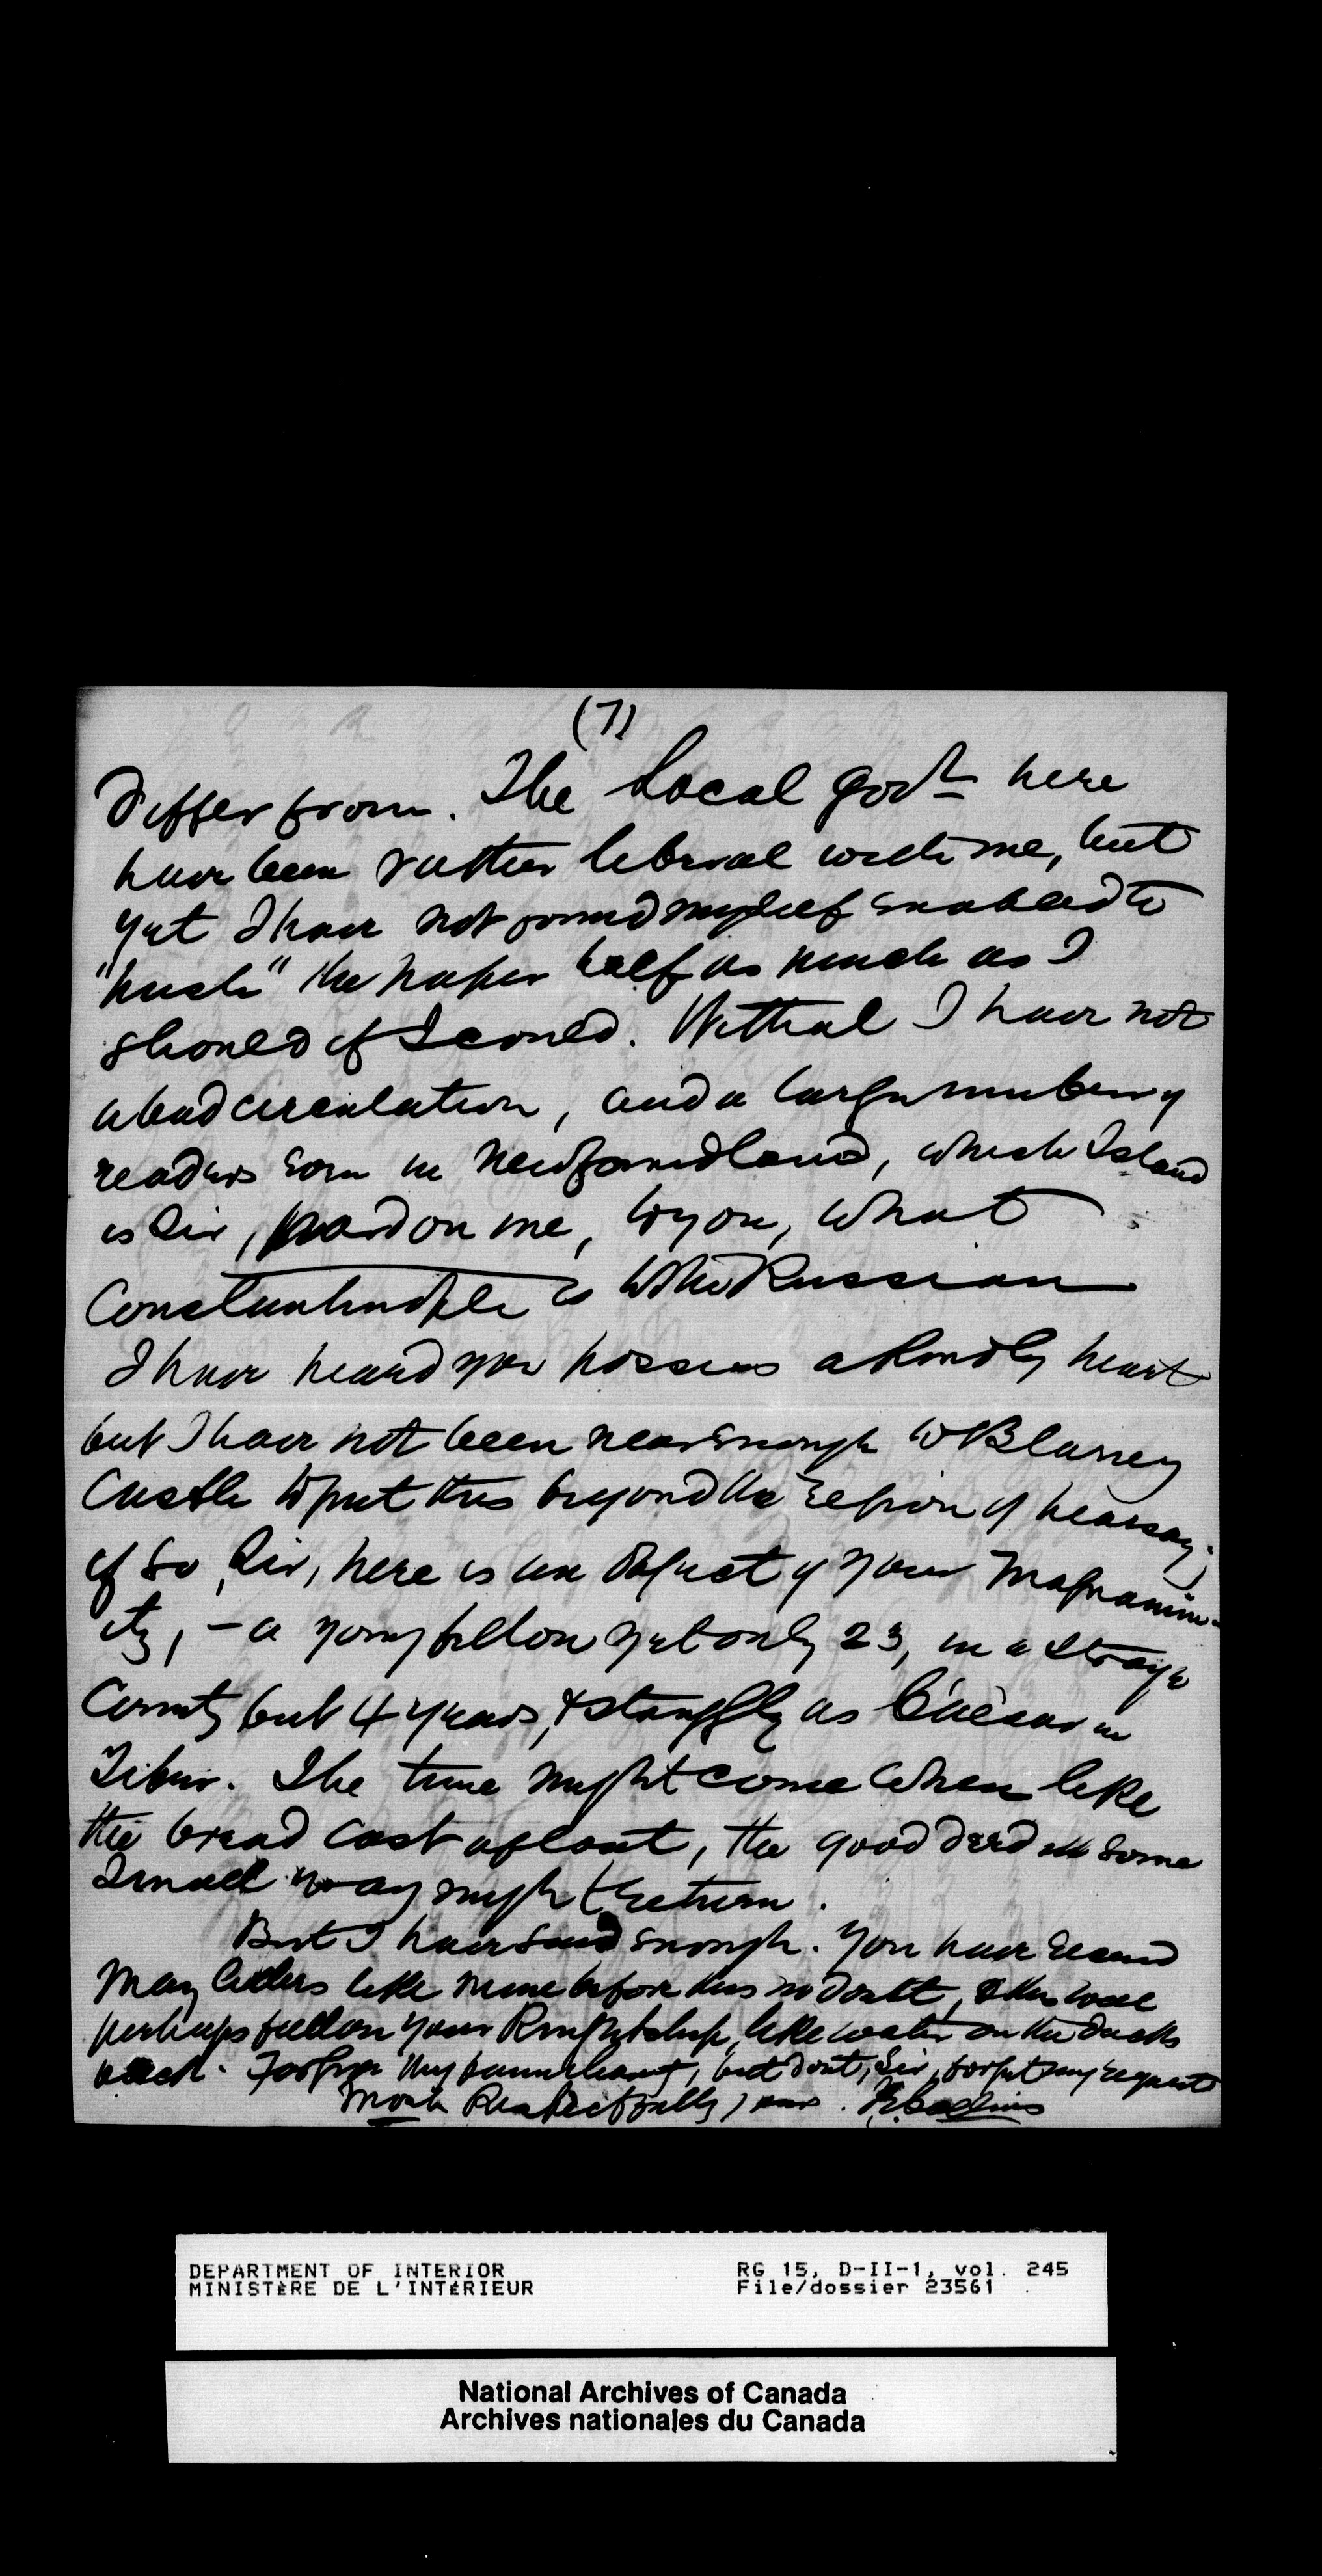 (7)
differ from. The Local Govt here
have been rather liberal with me, but
yet I have not found myself enabled to
"push" the paper half as much as I
should if I could. Withal I have not
a bad circulation, and a large number of
readers even in Newfoundland, which Island
is Sir, pardon me, to you, what
Constantinople is to the Russian
I have heard you possess a kindly heart
but I have not been near enough to Blarney
Castle to put this beyond the region of hearsay;
if so, Sir, here is an object of your Magnanim-
ity, – a young fellow yet only 23, in a strange
County but 4 years, & struggling as Caesar in
Tiber. The time might come when like
the bread cast afloat, the good deed in some
small way might return.
But I have said enough. You have read
many letters like mine before this no doubt, & this will
perhaps fall on your Knightship, like water on the ducks
back. Forgive my, but dont, Sir, forget my request
Most Respectfully yours.
DEPARTMENT OF INTERIOR
MINISTÈRE DE L'INTÉRIEUR
RG 15, D-II-1, vol. 245
File/dossier 23561
National Archives of Canada
Archives nationales du Canada